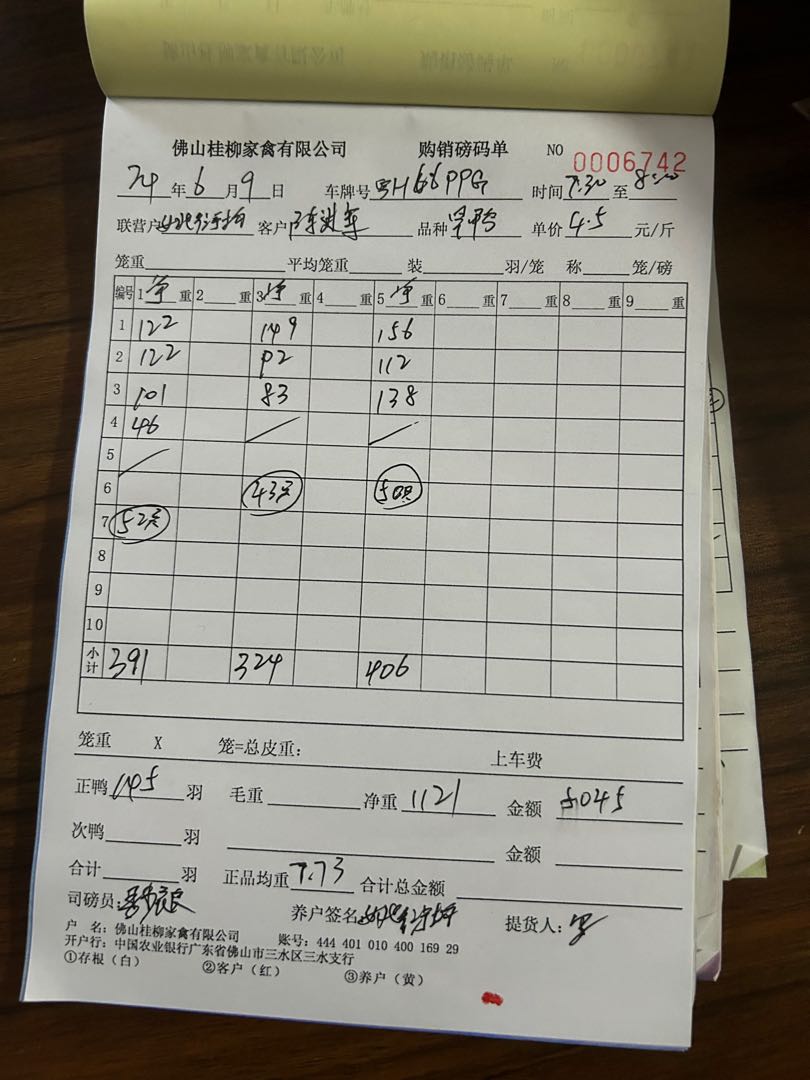 佛山桂柳家禽有限公司 购销磅码单 NO 0006742
24年6月9日 车牌号 粤H66PPG 时间7:30至8:20
联营户 客户 品种 单价4.5元/斤
笼重 平均笼重 装 羽/笼 称 笼/磅
编号 1净重 2 重 3净重 4 重 5净重 6 重 7 重 8 重 9 重
1 122 149 156
2 122 92 112
3 101 83 138
4 46
5
6 43只 50只
7 52只
8
9
10
小计 391 324 406
笼重 X 笼=总皮重: 上车费
正鸭145羽 毛重 净重1121 金额5045
次鸭 羽 金额
合计 羽 正品均重7.73 合计总金额
司磅员: 养户签名 提货人:
户 名: 佛山桂柳家禽有限公司 账号: 444 401 010 400 169 29
开户行: 中国农业银行广东省佛山市三水区三水支行
①存根(白) ②客户(红) ③养户(黄)